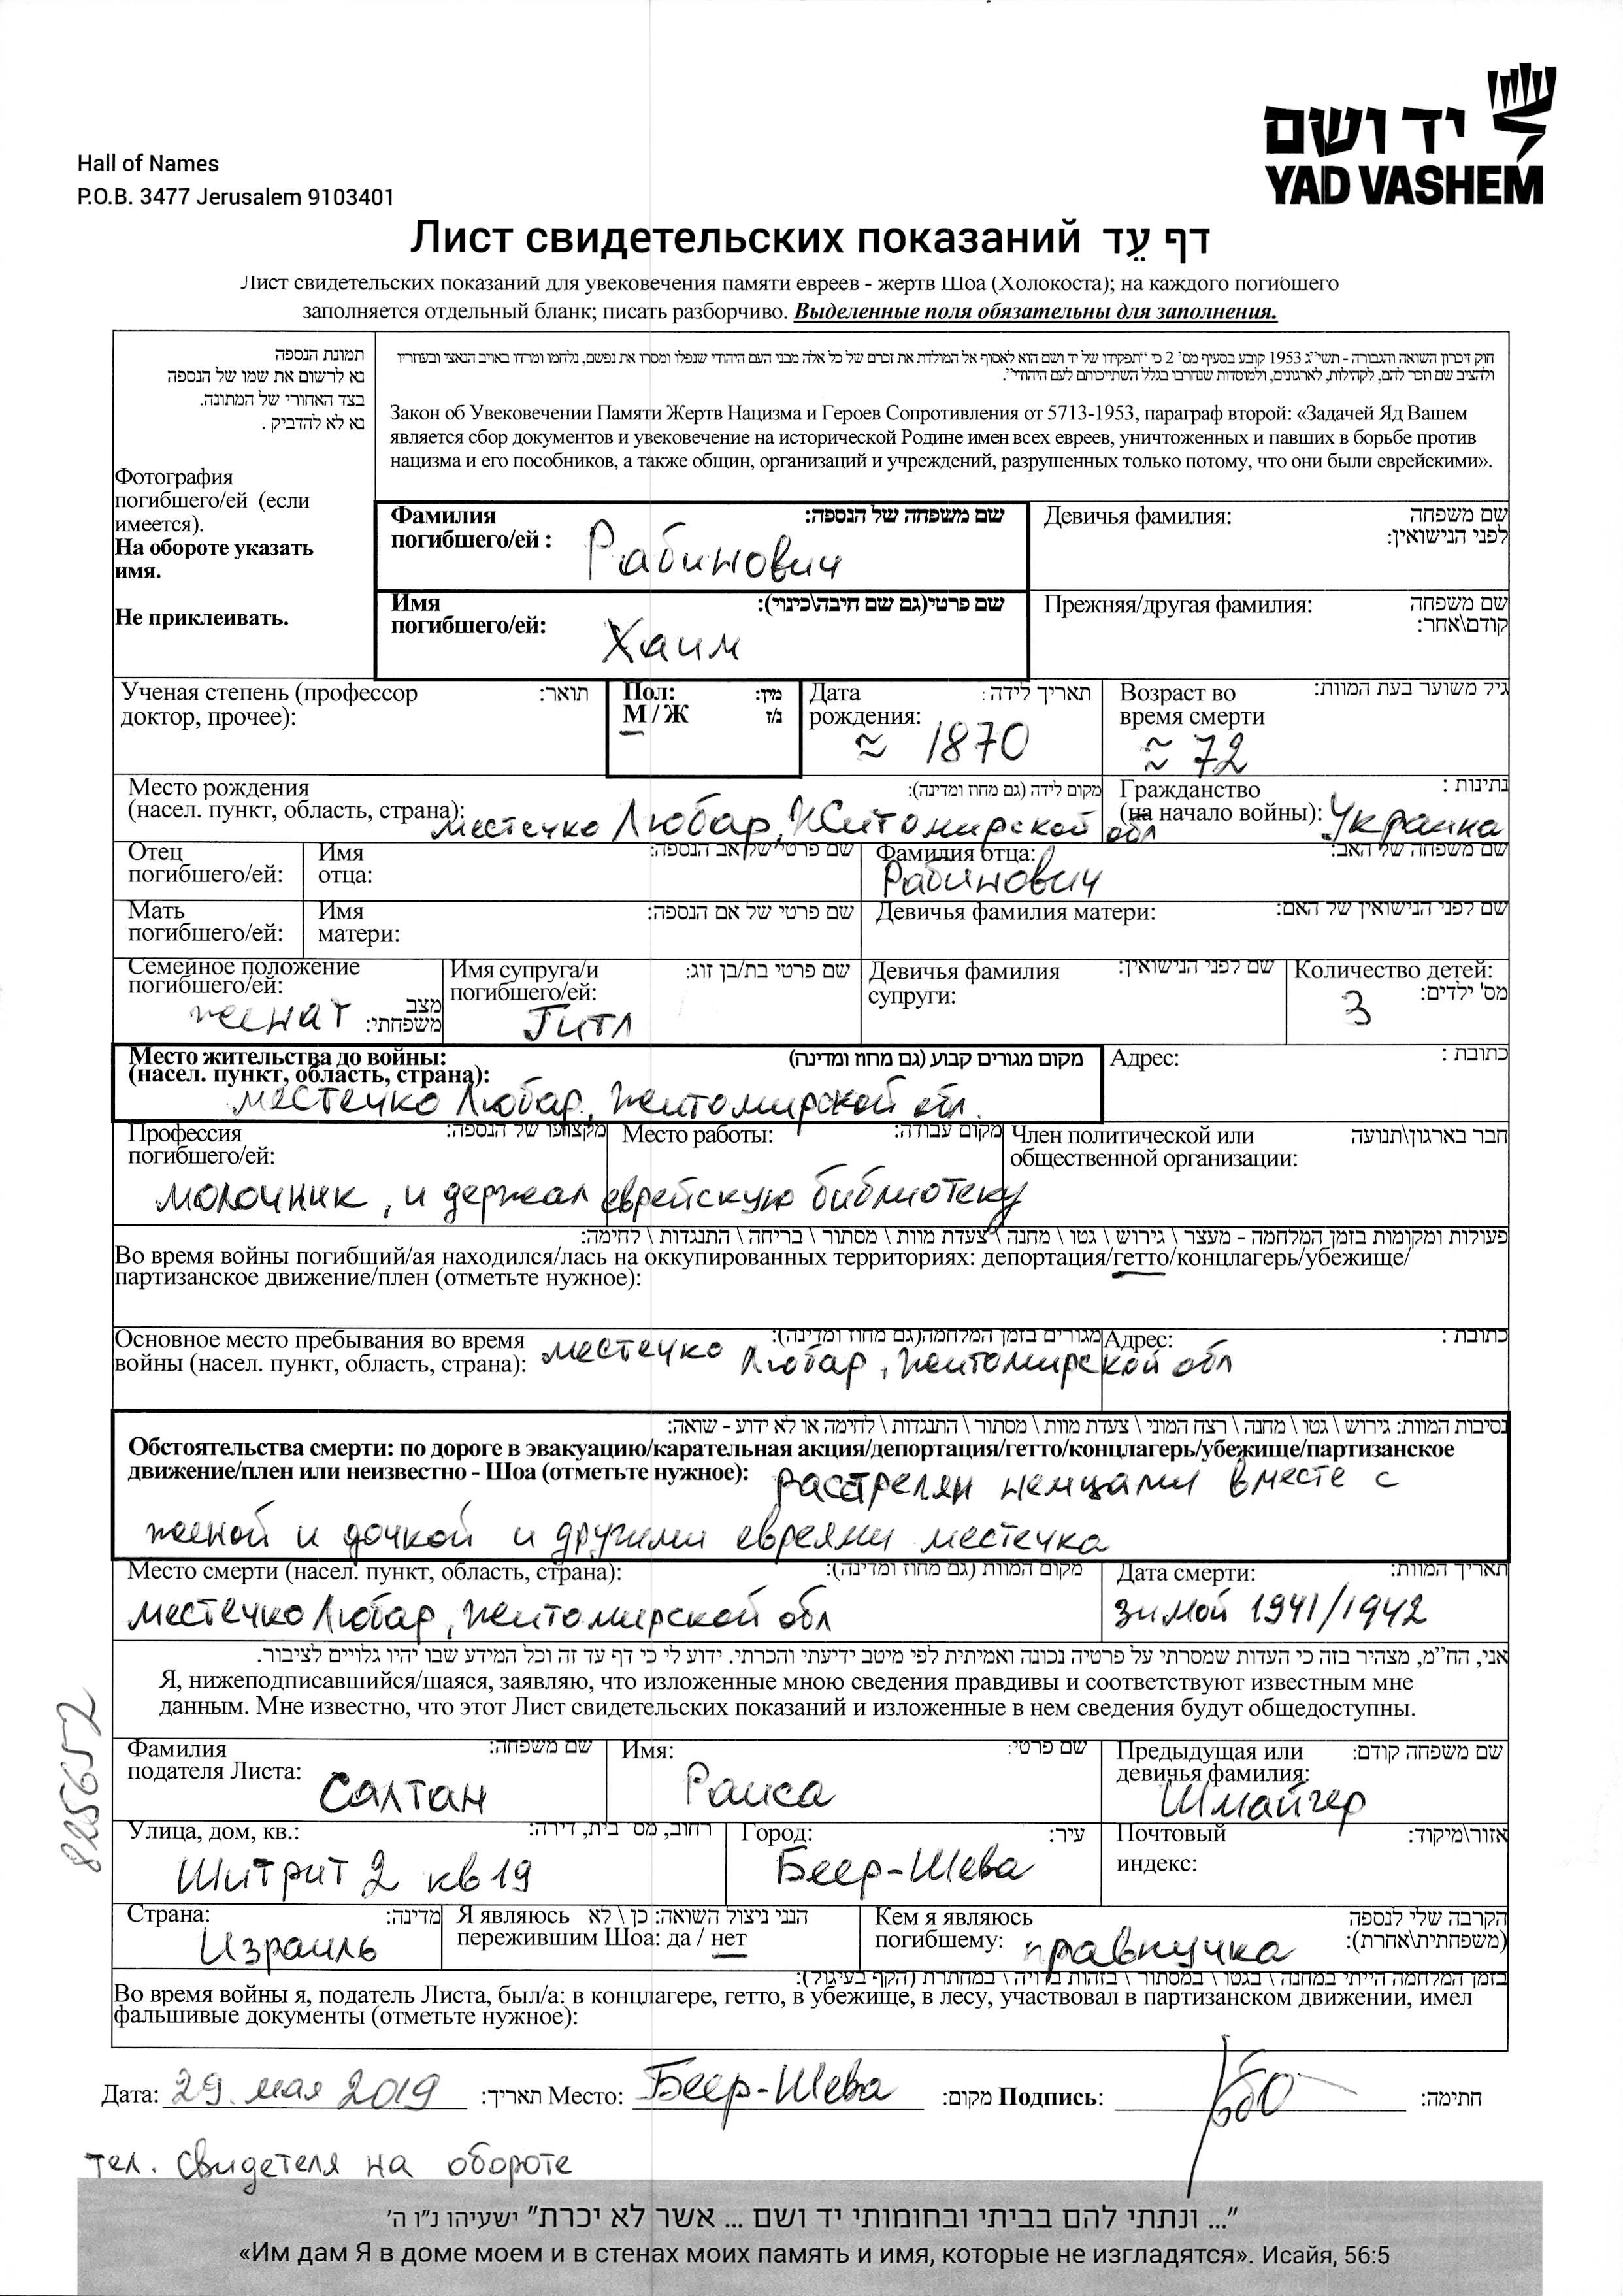 יד ושם
YAD VASHEM
Hall of Names
P.O.B. 3477 Jerusalem 9103401
Лист свидетельских показаний דף עֵד
Лист свидетельских показаний для увековечения памяти евреев - жертв Шоа (Холокоста); на каждого погибшего
заполняется отдельный бланк; писать разборчиво. Выделенные поля обязательны для заполнения.
תמונת הנספה
נא לרשום את שמו של הנספה
בצד האחורי של המתונה.
נא לא להדביק .
Фотография
погибшего/ей (если
имеется).
На обороте указать
имя.
Не приклеивать.
חוק זיכרון השואה והגבורה - תשי"ג 1953 קובע בסעיף מס' 2 כי "תפקידו של יד ושם הוא לאסוף אל המולדת את זכרם של כל אלה מבני העם היהודי שנפלו ומסרו את נפשם, נלחמו ומרדו באויב הנאצי ובעוזריו
ולהציב שם וזכר להם, לקהילות, לארגונים, ולמוסדות שנחרבו בגלל השתייכותם לעם היהודי".
Закон об Увековечении Памяти Жертв Нацизма и Героев Сопротивления от 5713-1953, параграф второй: «Задачей Яд Вашем
является сбор документов и увековечение на исторической Родине имен всех евреев, уничтоженных и павших в борьбе против
нацизма и его пособников, а также общин, организаций и учреждений, разрушенных только потому, что они были еврейскими».
Фамилия שם משפחה של הנספה:
погибшего/ей : Рабинович
Девичья фамилия: שם משפחה
לפני הנישואין:
Имя שם פרטי(גם שם חיבה\כינוי):
погибшего/ей: Хаим
Прежняя/другая фамилия: שם משפחה
קודם\אחר:
Ученая степень (профессор תואר:
доктор, прочее):
Пол: מין:
М / Ж ז/נ
Дата תאריך לידה :
рождения: ≈ 1870
Возраст во גיל משוער בעת המוות:
время смерти
≈ 72
Место рождения מקום לידה (גם מחוז ומדינה):
(насел. пункт, область, страна): местечко Любар, Житомирской обл
Гражданство נתינות :
(на начало войны): Украина
Отец Имя שם פרטי של אב הנספה:
погибшего/ей: отца:
Фамилия отца: שם משפחה של האב:
Рабинович
Мать Имя שם פרטי של אם הנספה:
погибшего/ей: матери:
Девичья фамилия матери: שם לפני הנישואין של האם:
Семейное положение
погибшего/ей: מצב
женат משפחתי:
Имя супруга/и שם פרטי בת/בן זוג:
погибшего/ей:
Гитл
Девичья фамилия שם לפני הנישואין:
супруги:
Количество детей:
מס' ילדים:
3
Место жительства до войны: מקום מגורים קבוע (גם מחוז ומדינה)
(насел. пункт, область, страна):
местечко Любар, Житомирской обл.
Адрес: כתובת :
Профессия מקצועו של הנספה:
погибшего/ей:
Место работы: מקום עבודה:
Член политической или חבר בארגון\תנועה
общественной организации:
молочник, и держал еврейскую библиотеку
פעולות ומקומות בזמן המלחמה - מעצר \ גירוש \ גטו \ מחנה \ צעדת מוות \ מסתור \ בריחה \ התנגדות \ לחימה:
Во время войны погибший/ая находился/лась на оккупированных территориях: депортация/гетто/концлагерь/убежище/
партизанское движение/плен (отметьте нужное):
Основное место пребывания во время מגורים בזמן המלחמה(גם מחוז ומדינה):
войны (насел. пункт, область, страна): местечко Любар, Житомирской обл
Адрес: כתובת :
נסיבות המוות: גירוש \ גטו \ מחנה \ רצח המוני \ צעדת מוות \ מסתור \ התנגדות \ לחימה או לא ידוע - שואה:
Обстоятельства смерти: по дороге в эвакуацию/карательная акция/депортация/гетто/концлагерь/убежище/партизанское
движение/плен или неизвестно - Шоа (отметьте нужное): расстрелян немцами вместе с
женой и дочкой и другими евреями местечка
Место смерти (насел. пункт, область, страна): מקום המוות (גם מחוז ומדינה):
местечко Любар, Житомирской обл
Дата смерти: תאריך המוות:
зимой 1941/1942
אני, הח"מ, מצהיר בזה כי העדות שמסרתי על פרטיה נכונה ואמיתית לפי מיטב ידיעתי והכרתי. ידוע לי כי דף עד זה וכל המידע שבו יהיו גלויים לציבור.
Я, нижеподписавшийся/шаяся, заявляю, что изложенные мною сведения правдивы и соответствуют известным мне
данным. Мне известно, что этот Лист свидетельских показаний и изложенные в нем сведения будут общедоступны.
8225652
Фамилия שם משפחה:
подателя Листа: Салтан
Имя: שם פרטי:
Раиса
Предыдущая или שם משפחה קודם:
девичья фамилия:
Шмайгер
Улица, дом, кв.: רחוב, מס בית, דירה:
Шитрит 2 кв 19
Город: עיר:
Беер-Шева
Почтовый אזור\מיקוד:
индекс:
Страна: מדינה:
Израиль
Я являюсь הנני ניצול השואה: כן \ לא
пережившим Шоа: да / нет
Кем я являюсь הקרבה שלי לנספה
погибшему: правнучка (משפחתית\אחרת):
בזמן המלחמה הייתי במחנה \ בגטו \ במסתור \ בזהות בדויה \ במחתרת (הקף בעיגול):
Во время войны я, податель Листа, был/а: в концлагере, гетто, в убежище, в лесу, участвовал в партизанском движении, имел
фальшивые документы (отметьте нужное):
Дата: 29 мая 2019 תאריך: Место: Беер-Шева מקום: Подпись: חתימה:
тел. свидетеля на обороте
"... ונתתי להם בביתי ובחומותי יד ושם ... אשר לא יכרת" ישעיהו נ"ו ה'
«Им дам Я в доме моем и в стенах моих память и имя, которые не изгладятся». Исайя, 56:5